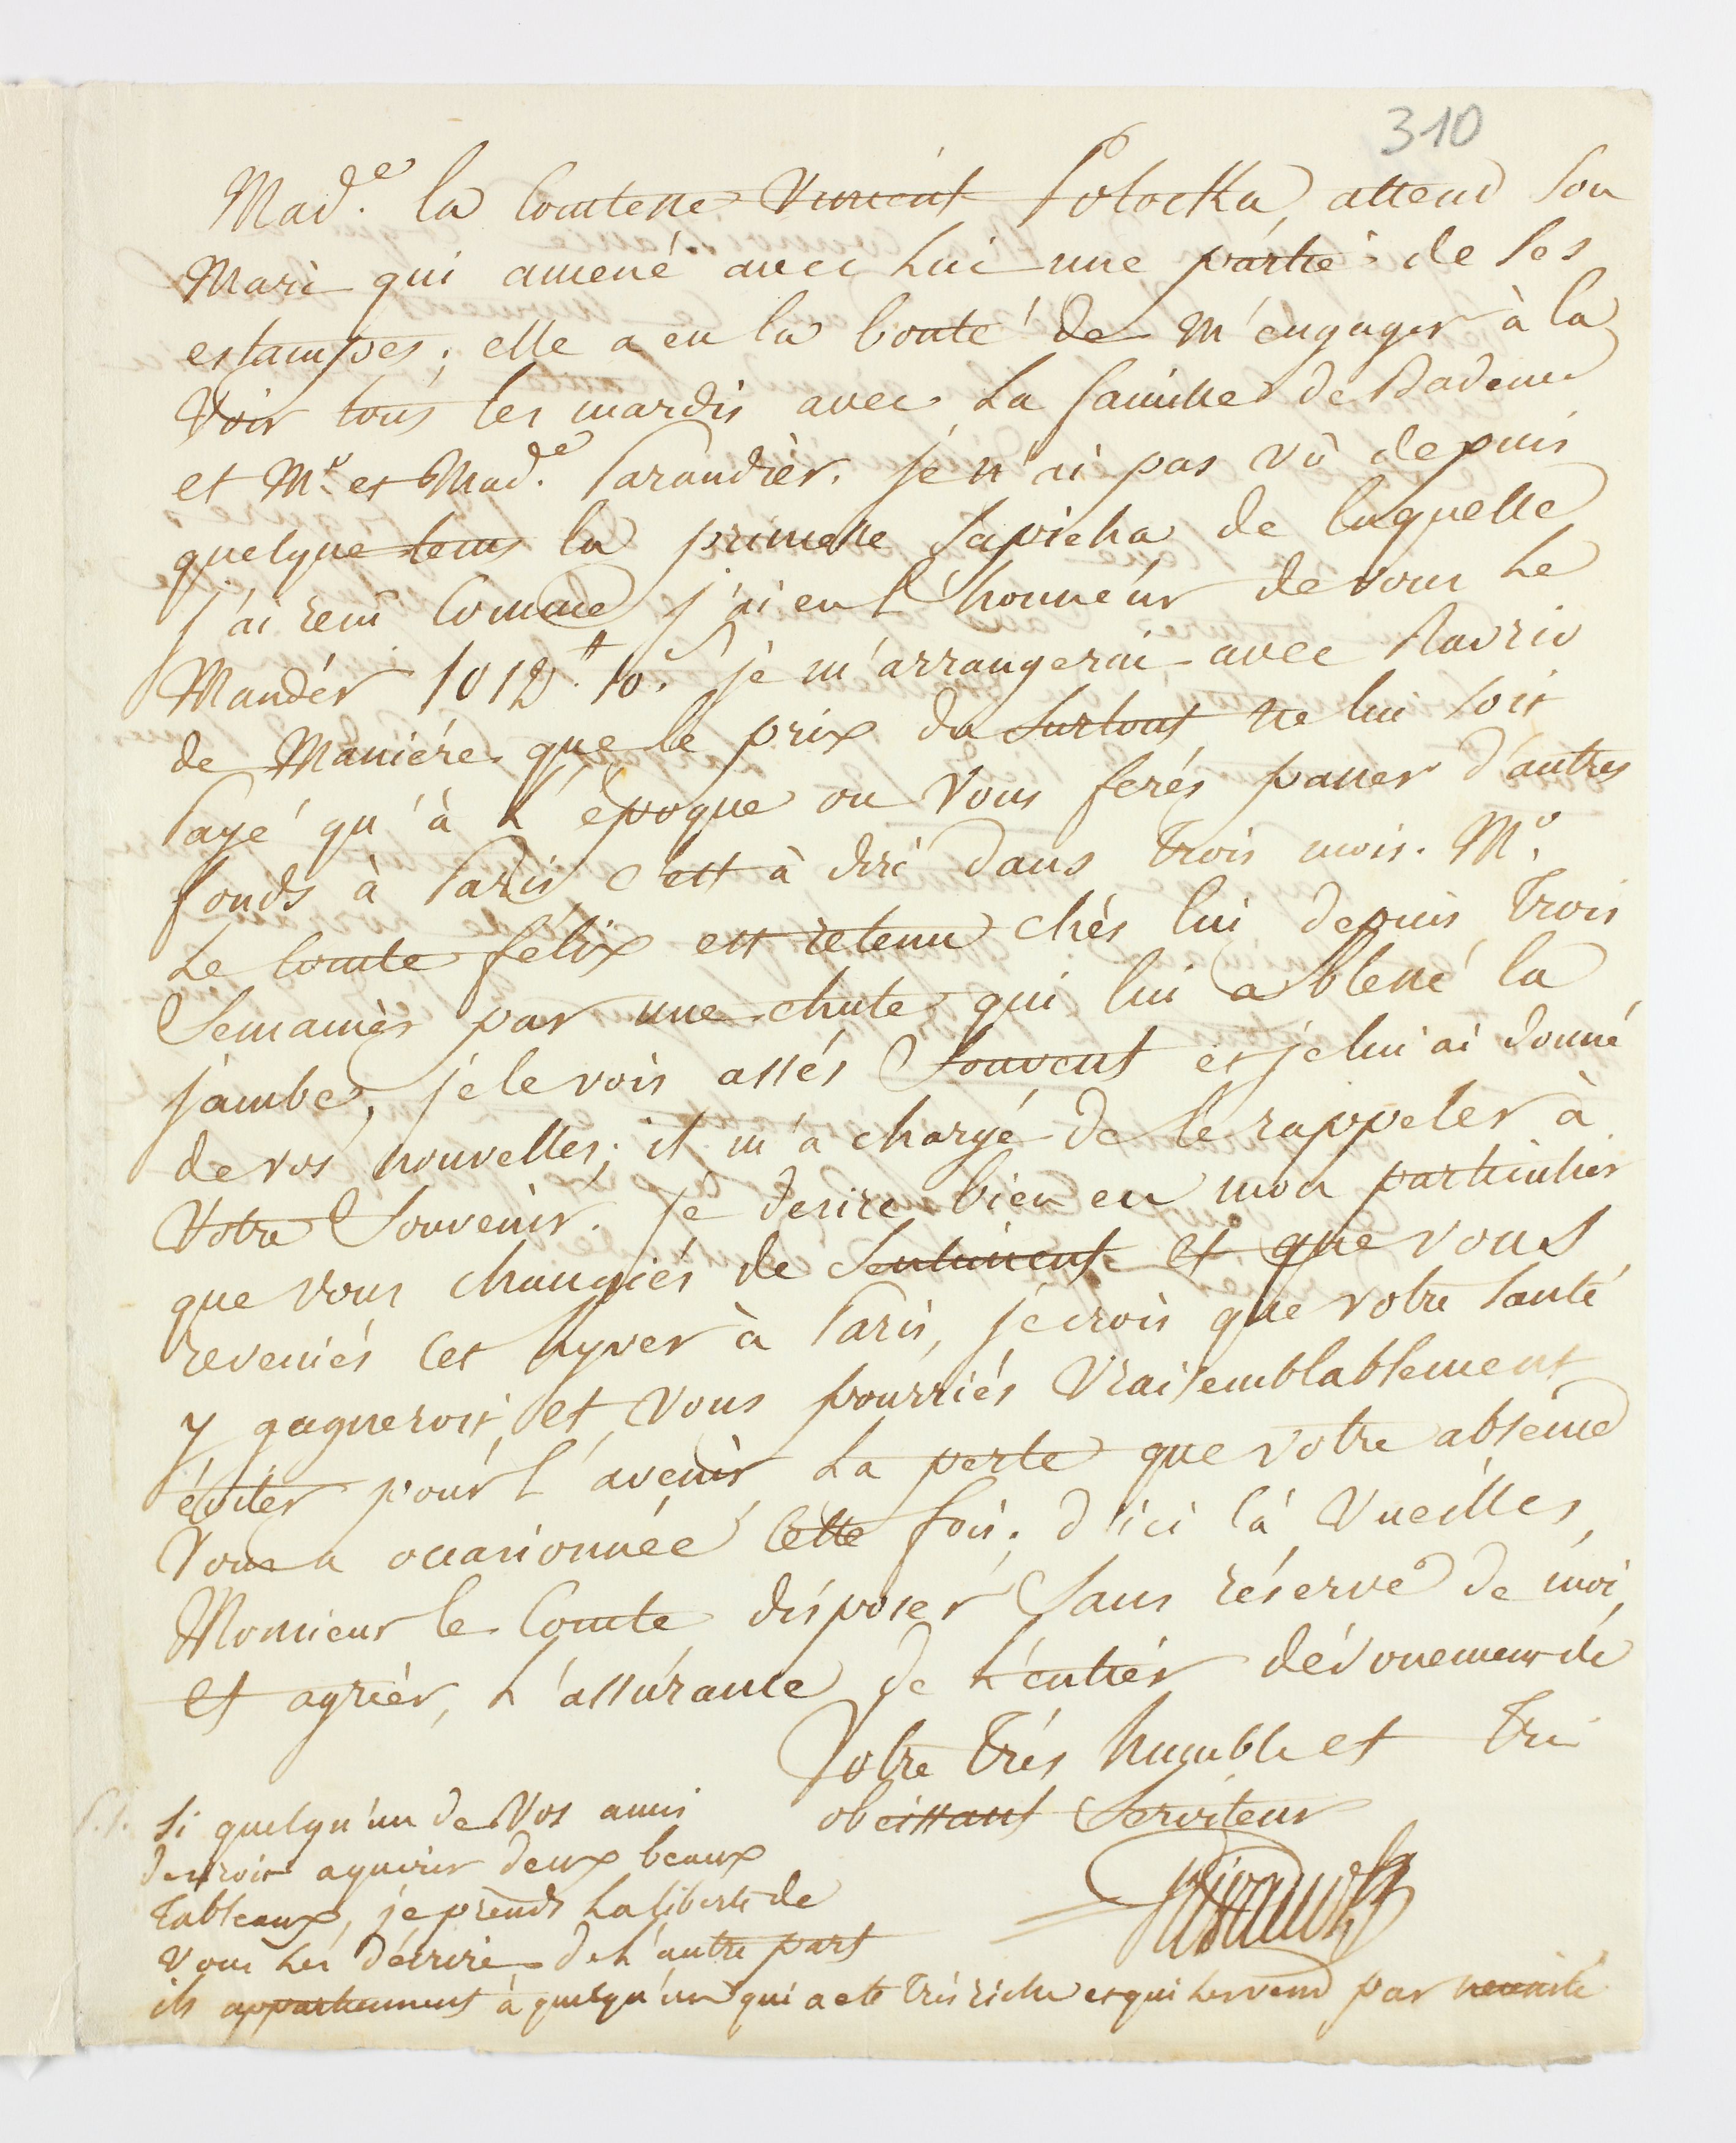 310
Mad.e la Comtesse Vincent Potocka, attend son
Mari qui amené avec Lui une partie de ses
estampes; elle a eu la bonté de M'engager à la
Voir tous les mardis avec La famille de
et Mr. et Mad.e Parandier. Je n'ai pas vû depuis
quelque tems la princesse Sapieha de laquelle
j'ai reçu Comme j'ai eu l'honneur de vous Le
Mandér 1012.# 10.s je m'arrangerai avec Ravrio
de Maniére que le prix du Surtout ne lui soit
Payé qu'à L'époque ou Vous ferés passer d'autres
fonds à Paris c'est à diré dans trois mois. Mr.
Le Comte félix est retenu chés lui depuis trois
Semainés par une chute qui lui a blessé la
jambe, je le vois assés Souvent et je lui ai donné
de vos nouvelles; il m'a chargé de le rappeler à
Votre Souvenir. Je desire bien en mon particulier
que vous changiés de Sentiment et que vous
reveniés Cet hyver à Paris, je crois que votre Santé
y gagneroit, et Vous pourriés Vraisemblablement
éviter pour l'avenir La perte que votre absence
Vous a occasionnée Cette fois. d'ici là Vueillés,
Monsieur le Comte disposer Sans réserve de moi,
et agrier, L'assurance de L'entier dévouement de
Votre trés humble et tres
obeissant Serviteur
P.S. Si quelqu'un de Vos amis
desiroit aquerir deux beaux
tableaux, je prends La liberté de
vous Les décrire de L'autre part
ils appartiennent à quelqu'un qui a eté trés riche et qui les vend par necessité